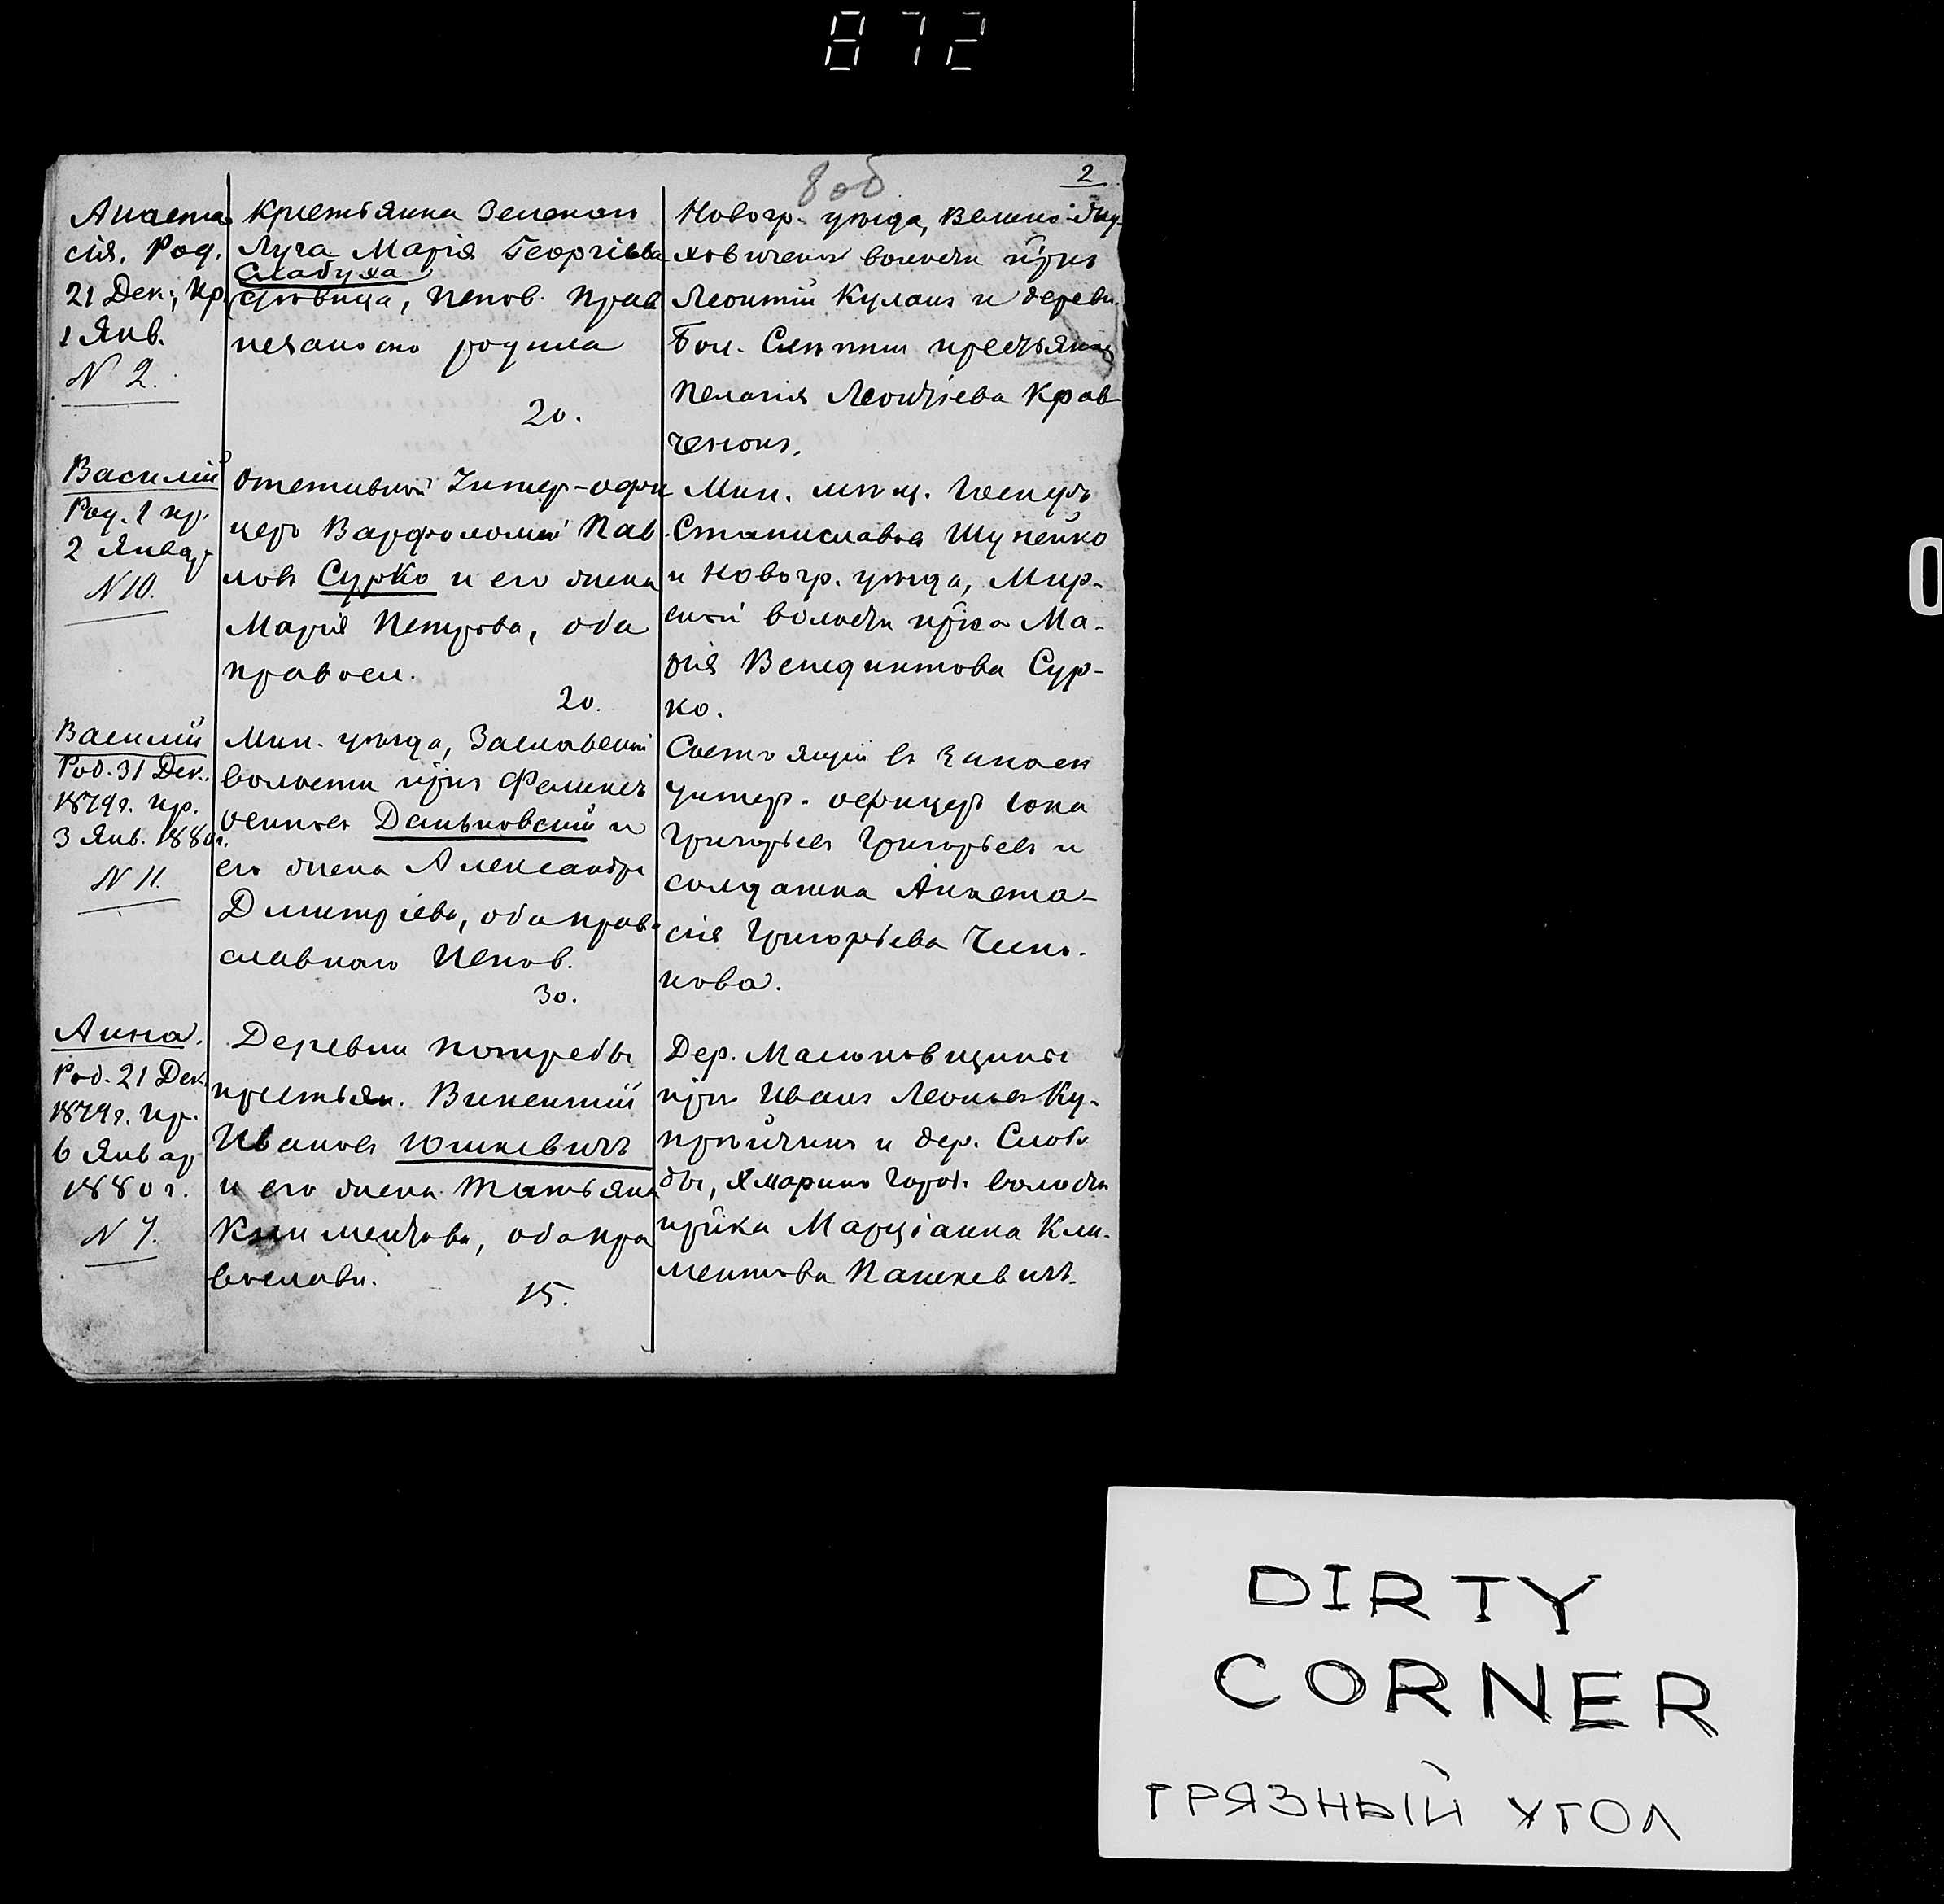 872
8 об
2
Анаста-
сія. Род.
21 Дек., Кр.
1 Янв.
N 2.
Крестьянка Зеленаго
Луга Марія Георгіева
Слабуха
дѣвица, испов. Прав
незаконно родила
20.
Новогр. уѣзда, Велико-Жу-
ховичской волости кр̃нъ
Леонтій Куланъ и дерев.
Бол. Слѣпни крестьянка
Пелагія Леонтіева Крав-
ченокъ.
Василій
Род. 1 кр.
2 Январ
N 10.
Отставной Унтер-офи
церъ Варфоломей Пав-
ловъ Сурко и его жена
Марія Петрова, оба
правосл.
20.
Мин. мѣщ. Іосифъ
Станиславовъ Шупейко
и Новогр. уѣзда, Мир-
ской волости кр̃нка Ма-
рія Венедиктова Сур-
ко.
Василій
Род. 31 Дек.
1879 г. кр.
3 Янв. 1880 г.
N 11.
Мин. уѣзда, Заславской
волости кр̃нъ Феликсъ
Осиповъ Даньковскій и
его жена Александра
Димитріева, оба прав-
славнаго Испов.
30.
Состоящій въ запасѣ
унтер-офицеръ Іона
Григорьевъ Григорьевъ и
солдатка Анаста-
сія Григорьева
нова.
Анна.
Род. 21 Дек.
1879 г. кр.
6 Январ
1880 г.
N 7.
Деревни Потребы
крестьян. Викентій
Ивановъ Юшкевичъ
и его жена Татьяна
Климентова, оба пра
вославн.
15.
Дер. Масюковщины
кр̃нъ Иванъ Леоновъ Ку-
прейчикъ и дер. Слобо
ды, волости
кр̃нка Марціанна Кли-
ментова Пашкевичъ.
DIRTY
CORNER
ГРЯЗНЫЙ УГОЛ